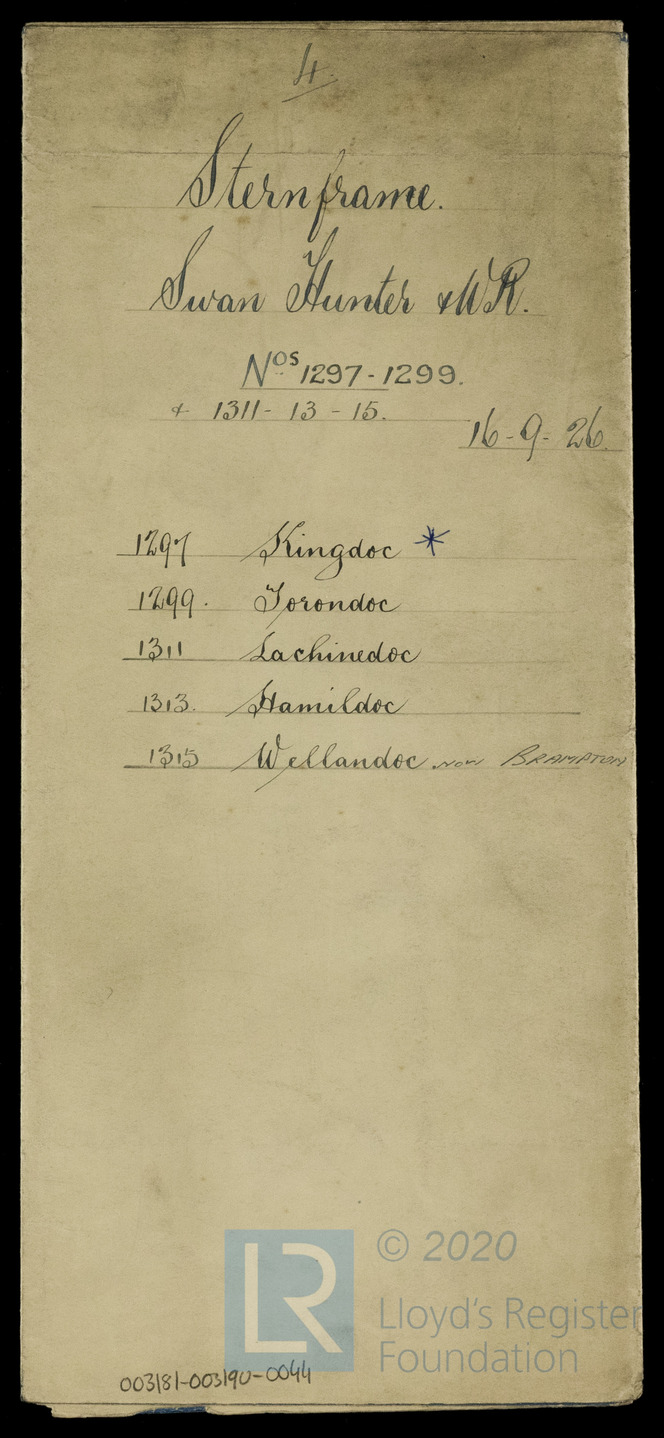 4.
Sternframe.
Swan Hunter & W R.
Nos 1297-1299.
+ 1311 - 13 - 15.
16-9-26.
1297 Kingdoc *
1299. Torondoc
1311 Lachinedoc
1313. Hamildoc
1315 Wellandoc. now BRAMPTON
LR
© 2020
Lloyd's Register
Foundation
003181-003190-0044